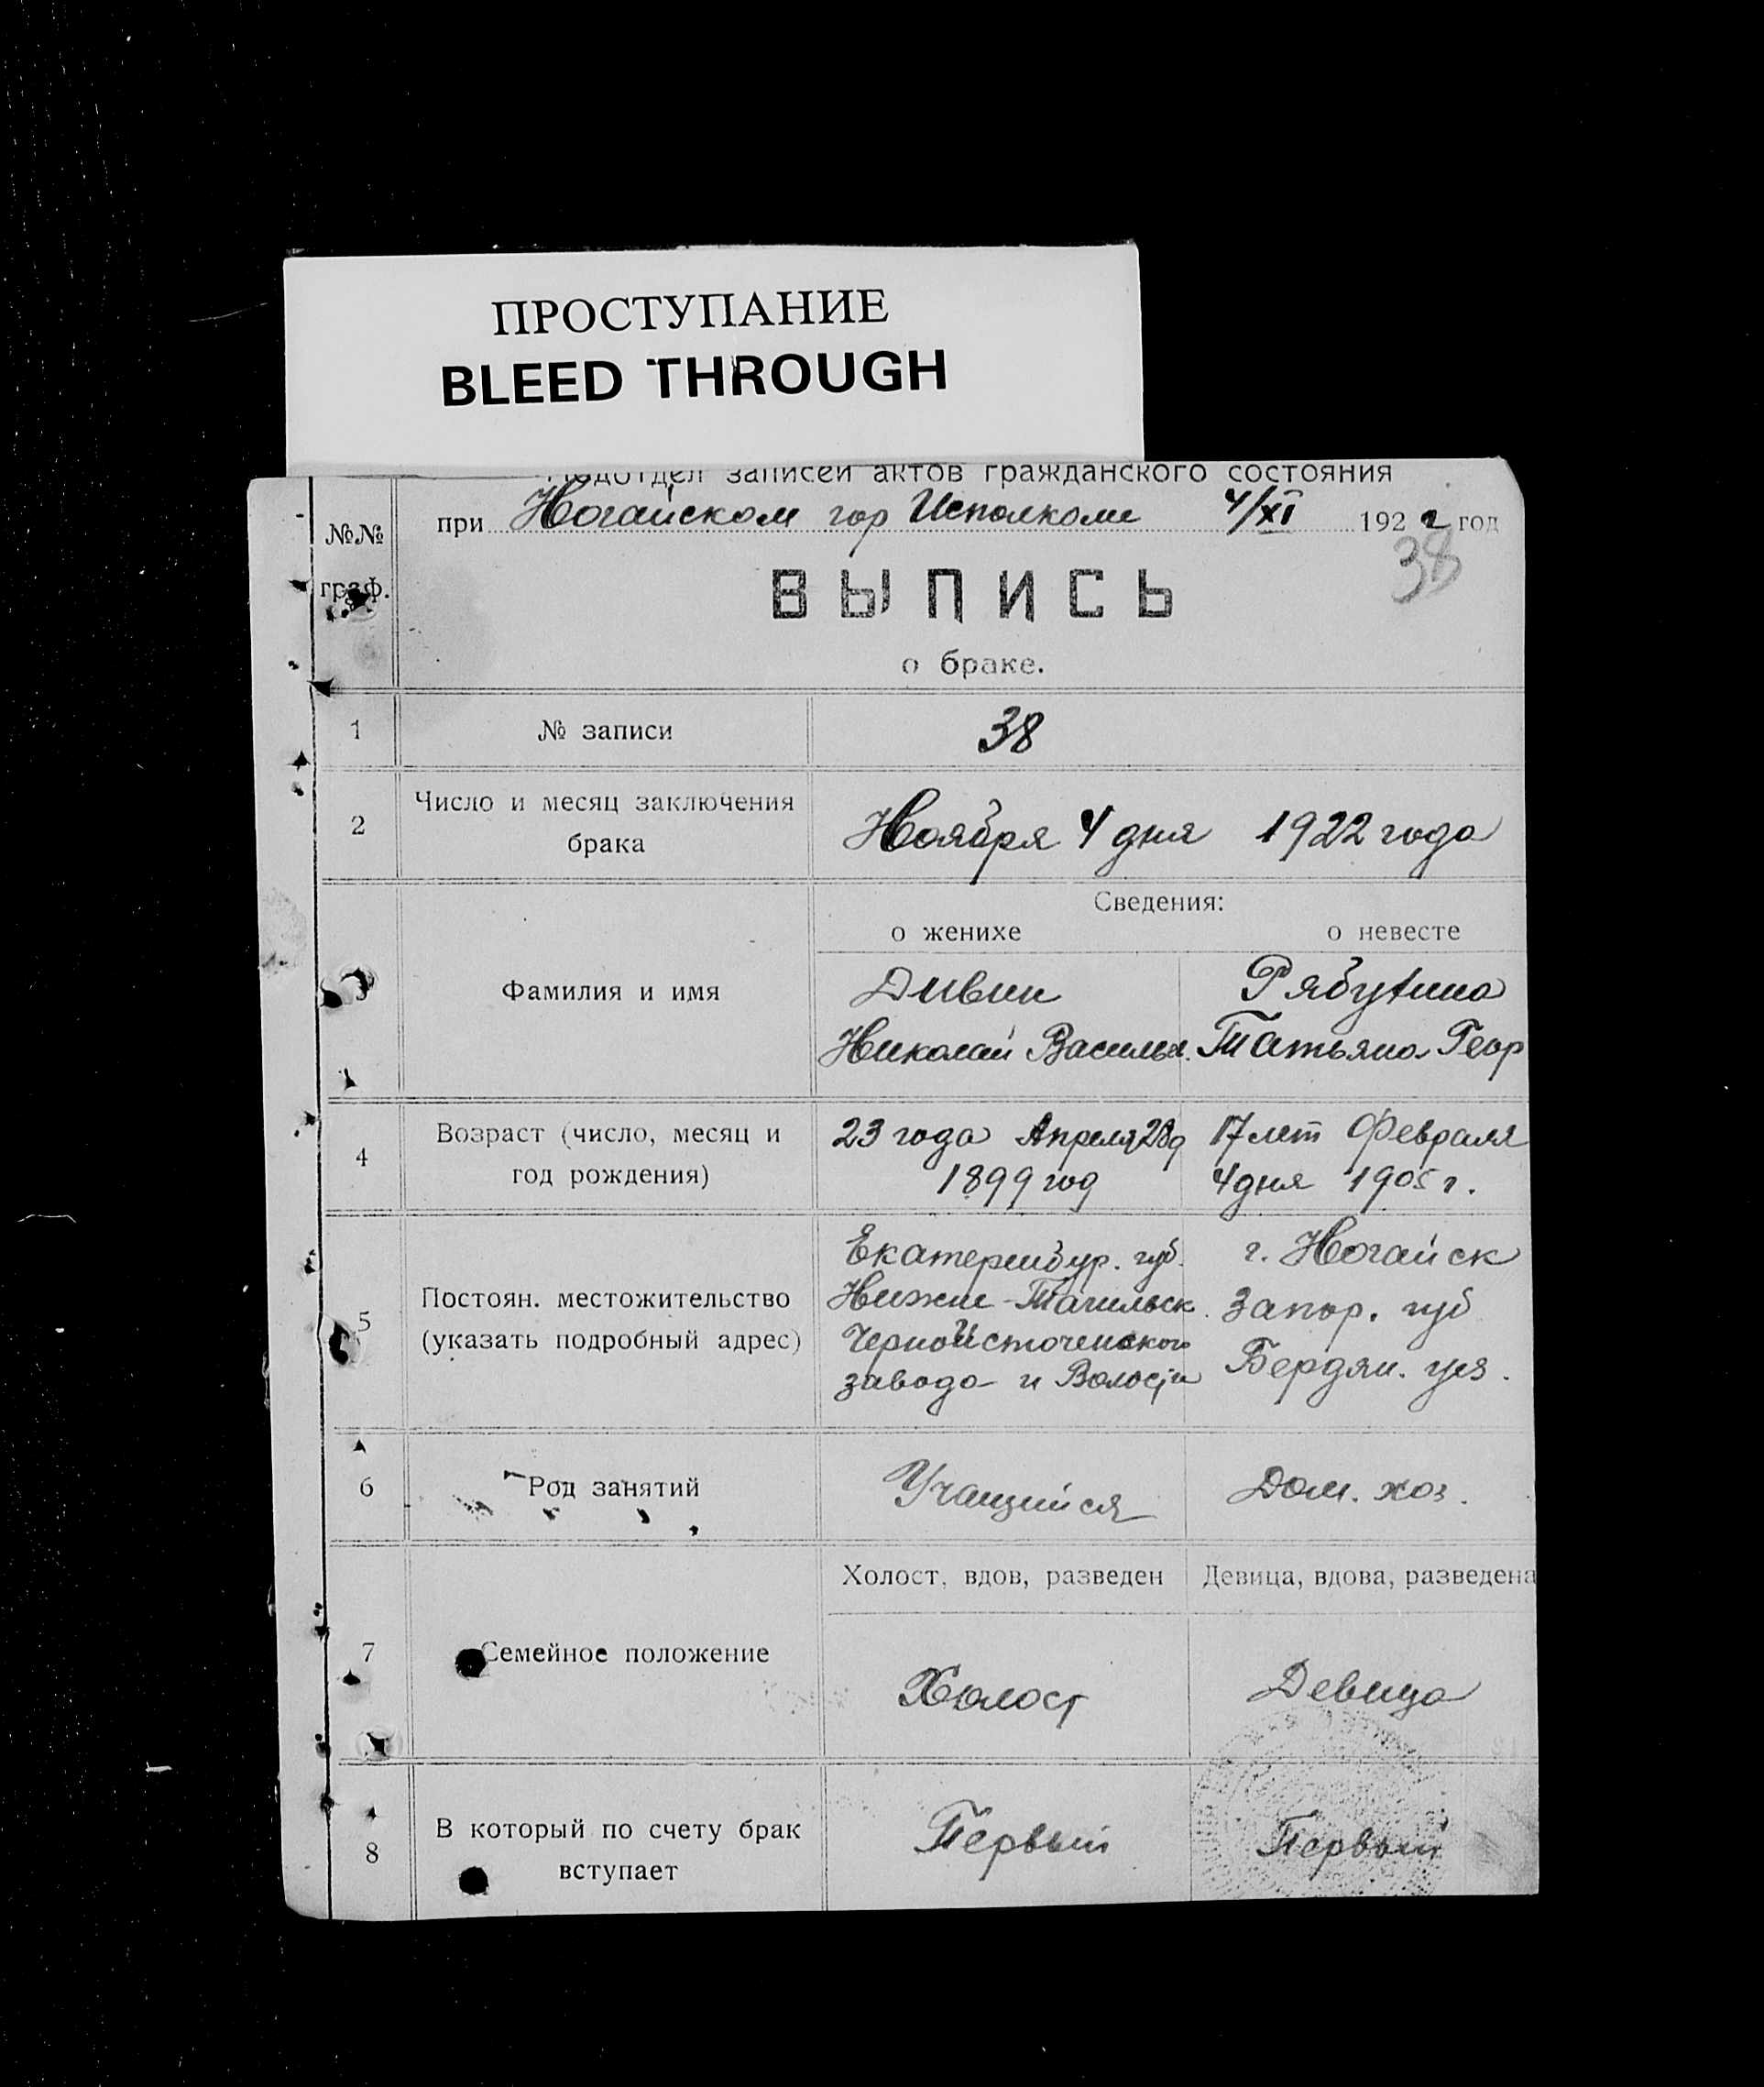 ПРОСТУПАНИЕ
BLEED THROUGH
Подотдел записей актов гражданского состояния
при Ногайском гор Исполкоме 4/XI 1922 год
38
№№
граф.
ВЫПИСЬ
о браке.
1 № записи 38
2 Число и месяц заключения
брака
Ноября 4 дня 1922 года
Сведения:
о женихе о невесте
3 Фамилия и имя
Дивин Рябухина
Николай Василье. Татьяна Геор
4 Возраст (число, месяц и
год рождения)
23 года Апреля 28д 17 лет Февраля
1899 год 4 дня 1905 г.
5 Постоян. местожительство
(указать подробный адрес)
Екатеринбур. губ. г. Ногайск
Нижне-Тагильск. Запор. губ
ЧерноИсточенского Бердян. уез.
завода и Волости
6 Род занятий Учащийся Дом. хоз.
Холост, вдов, разведен Девица, вдова, разведена
7 Семейное положение
Холост Девица
8 В который по счету брак
вступает
Первый Первый